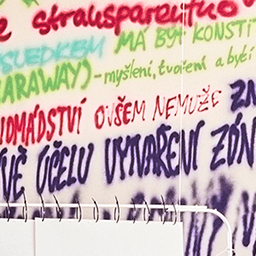 e stransparentňo
SLEDKEM MÁ BÝT KONSTI
(HARAWAY) - myšlení, tvoření a bytí
NOMÁDSTVÍ OVŠEM NEMŮŽE ZN
VĚ ÚČELU VYTVÁŘENÍ ZDÁN